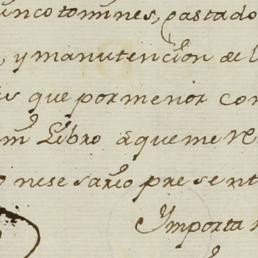 unco tomines, gastado
, y manutencion de l
que por menor con
mi Libro aqueme re
nesesario present
Ymporta